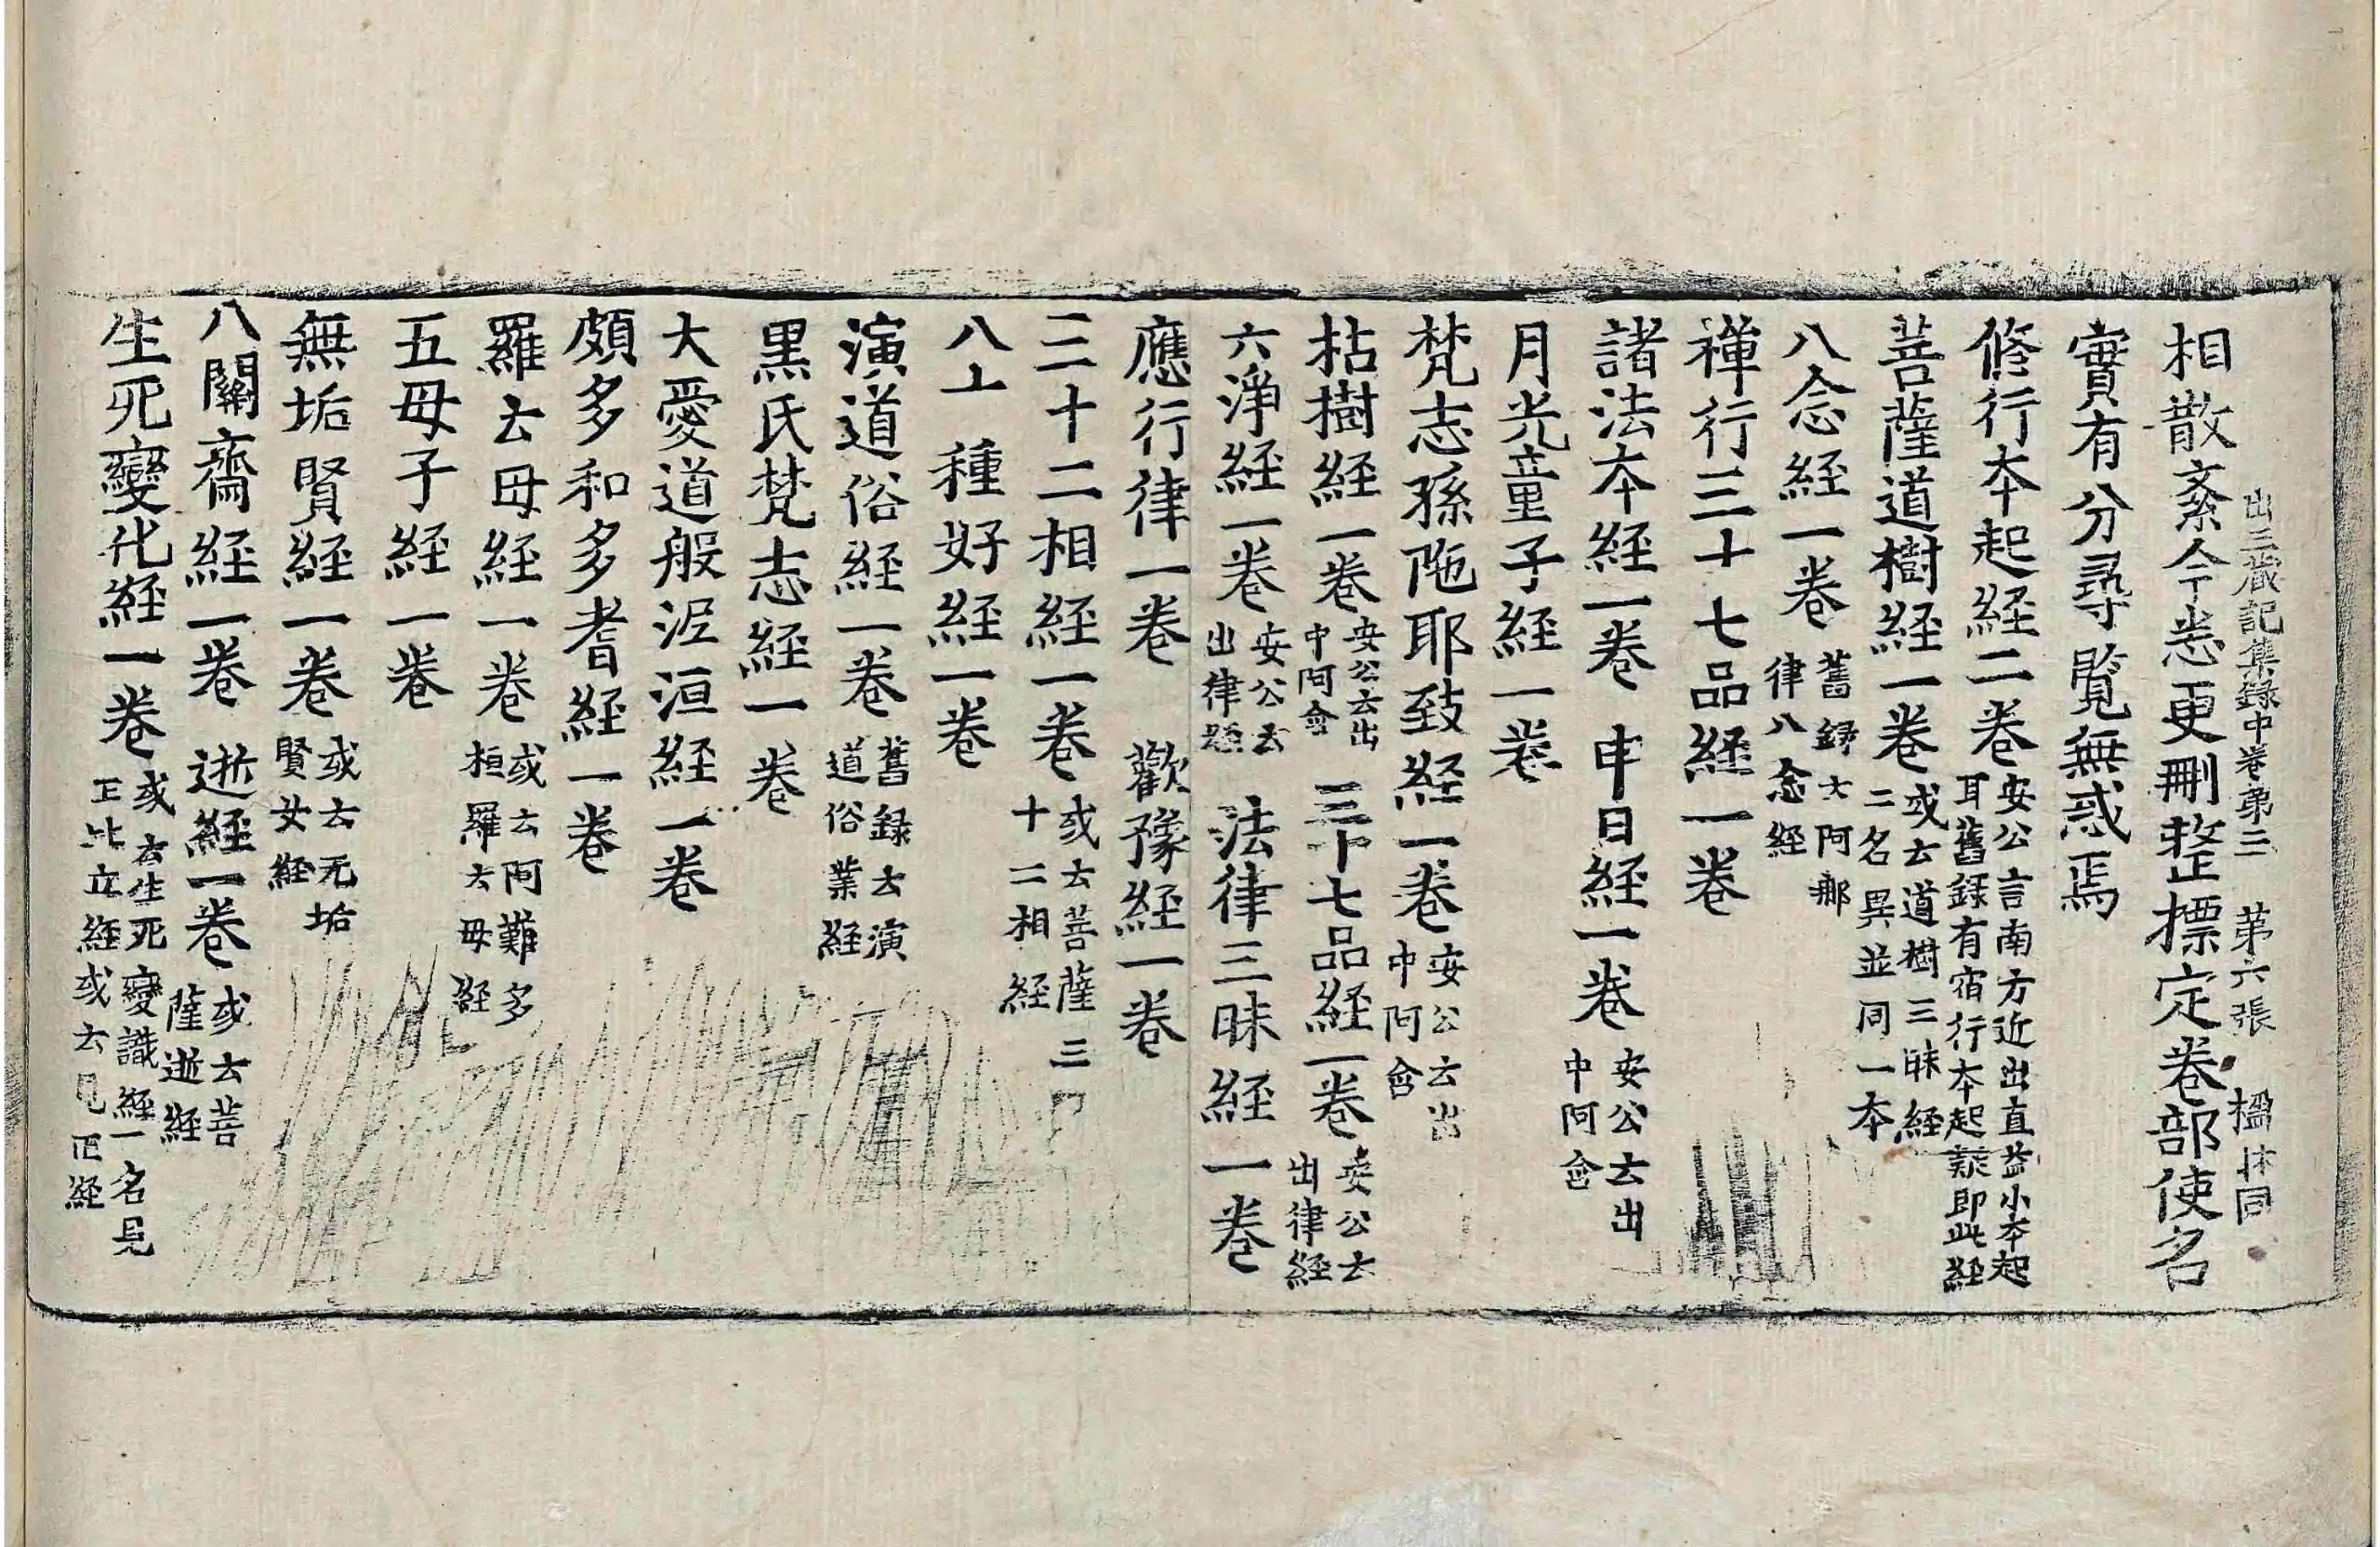 出三蔵記集録中卷第三 第六張 楹 同
相散紊今悉更刪整標定卷部使名
實有分尋覽無惑焉
修行本起経二卷 安公言南方近出直益小本起耳舊録有宿行本起疑即此経
菩薩道樹経一卷 或云道樹三昧経二名異並同一本
八念経一卷 舊録云阿那律八念経
禅行三十七品経一卷
諸法本経一卷 申日経一卷 安公云出中阿含
月光童子経一卷
梵志孫陁耶致経一卷 安公云出中阿含
枯樹経一卷 安公云出中阿含 三十七品経一卷 安公云出律経
六淨経一卷 安公云出律 法律三昧経一卷
應行律一卷 歡豫経一卷
三十二相経一卷 或云菩薩三十二相経
八十種好経一卷
演道俗経一卷 舊録云演道俗業経
黒氏梵志経一卷
大愛道般泥洹経一卷
頗多和多耆経一卷
羅云母経一卷 或云阿難多桓羅云母経
五母子経一卷
無垢賢経一卷 或云无垢賢女経
八關齋経一卷 逝経一卷 或云菩薩逝経
生死變化経一卷 或云生死變識経一名見正比丘経或云見正経